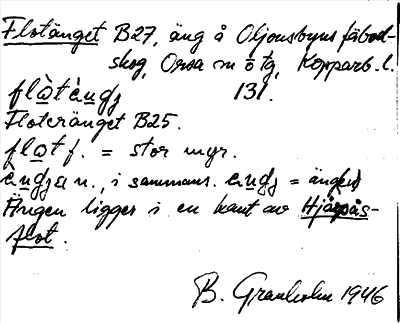 Flotänget B27, äng å Oljonsbyns fäbod-
skog, Orsa sn o tg, Kopparb. l.
flòtèngj 131.
Floteränget B25.
flot f. = stor myr.
engja n., i sammans. engj = äng
Ängen ligger i en kant av Hjärpås-
flot.
B. Granholm 1946